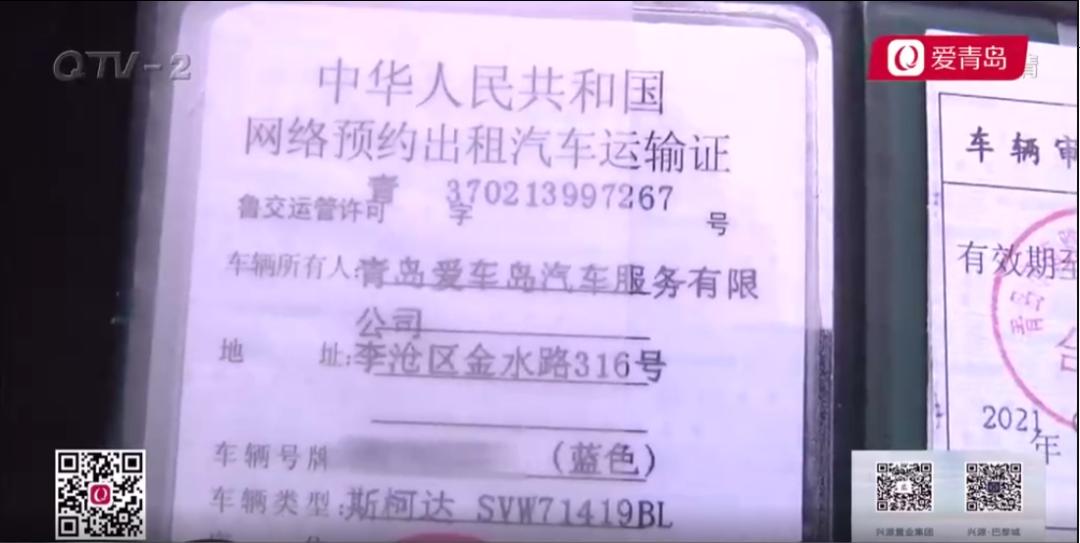 QTV-2
爱青岛
中华人民共和国
网络预约出租汽车运输证
鲁交运管许可 青 字 370213997267 号
车辆所有人:青岛爱车岛汽车服务有限
公司
地 址:李沧区金水路316号
车辆号牌 (蓝色)
车辆类型:斯柯达 SVW71419BL
车辆审
有效期至
青岛
2021 年
兴源置业集团
兴源·巴黎城